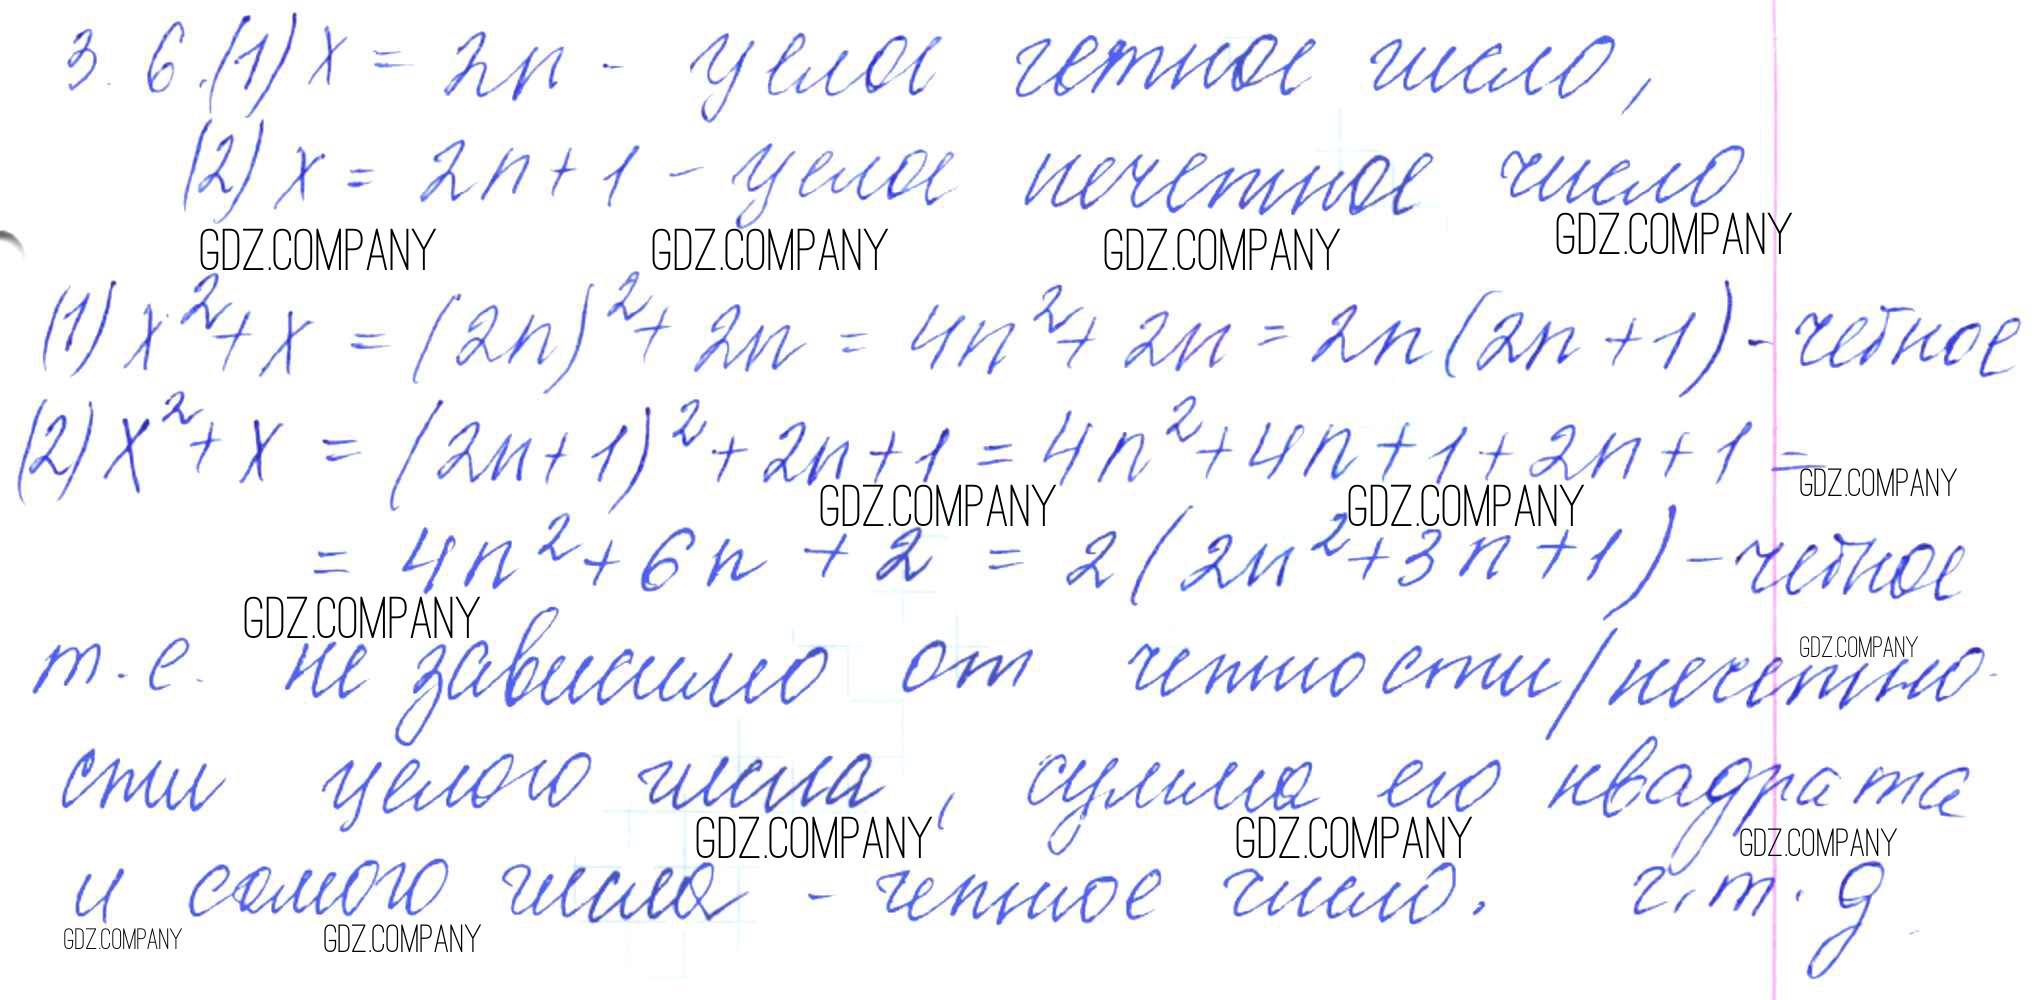 3.6.(1) x = 2n - целое четное число,
(2) x = 2n+1 - целое нечетное число
GDZ.COMPANY GDZ.COMPANY GDZ.COMPANY GDZ.COMPANY
(1) x²+x = (2n)²+2n = 4n²+2n = 2n(2n+1) - четное
(2) x²+x = (2n+1)²+2n+1 = 4n²+4n+1+2n+1 =
GDZ.COMPANY GDZ.COMPANY GDZ.COMPANY
= 4n²+6n+2 = 2(2n²+3n+1) - четное
GDZ.COMPANY
т.е. не зависимо от четности/нечетно-
GDZ.COMPANY
сти целого числа, сумма его квадрата
GDZ.COMPANY GDZ.COMPANY GDZ.COMPANY
и самого числа - четное число. ч.т.д
GDZ.COMPANY GDZ.COMPANY